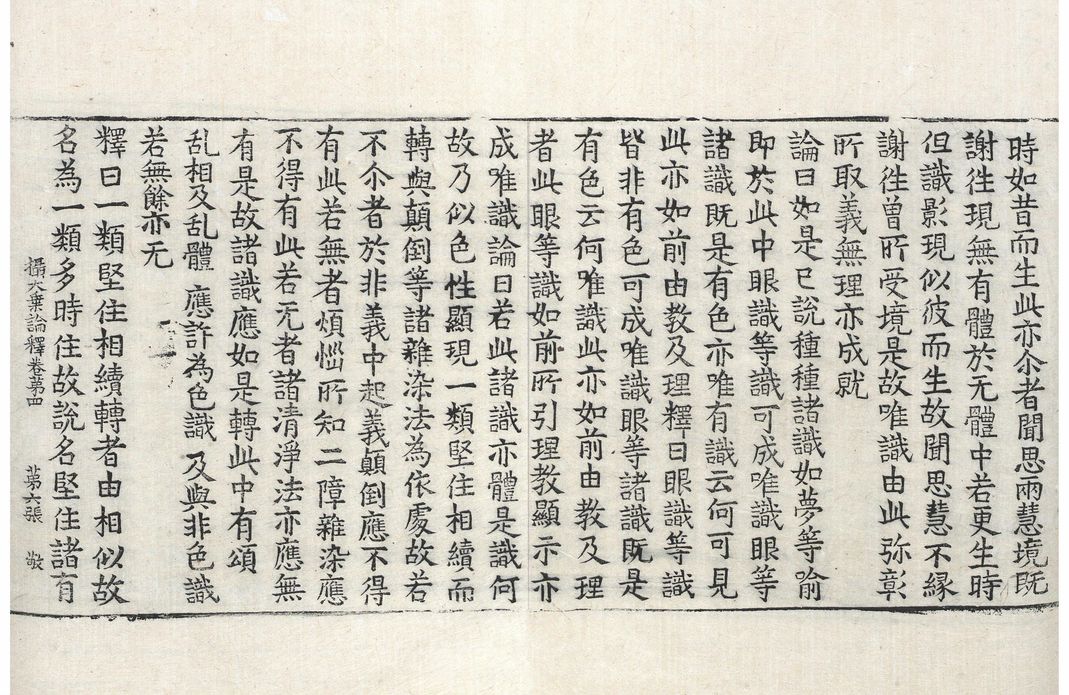 時如昔而生此亦尒者聞思兩慧境既
謝徃現無有體於无體中若更生時
但識影現似彼而生故聞思慧不緣
謝徃曾所受境是故唯識由此弥彰
所取義無理亦成就
論曰如是已說種種諸識如夢等喻
即於此中眼識等識可成唯識眼等
諸識既是有色亦唯有識云何可見
此亦如前由教及理釋曰眼識等識
皆非有色可成唯識眼等諸識既是
有色云何唯識此亦如前由教及理
者此眼等識如前所引理教顯示亦
成唯識論曰若此諸識亦體是識何
故乃似色性顯現一類堅住相續而
轉與顛倒等諸雜染法為依處故若
不尒者於非義中起義顛倒應不得
有此若無者煩惱所知二障雜染應
不得有此若无者諸清淨法亦應無
有是故諸識應如是轉此中有頌
乱相及乱體 應許為色識 及與非色識
若無餘亦无
釋曰一類堅住相續轉者由相似故
名為一類多時住故說名堅住諸有
攝大乗論釋卷苐四 苐六張 敬